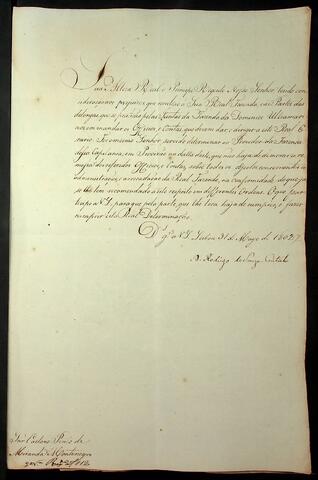 Sua Alteza Real o Principe Regente Nosso Senhor, tendo
consideração ao prejuizo, que resulta á Sua Real Fazenda, da
delonga, que se pratica pelas Juntas da Fazenda dos Dominios Ultramar-
nos em mandar os Officios, e Contas, que devem dar, e dirigir a este Real E-
rario: He o mesmo Senhor servido determinar ao Provedor da Fazenda
dessa Capitania, em Provisão na data desta, que não haja de demorar a re-
messa dos referidos Officios, e Contas, sobre todos os objectos concernentes á
administração, e arrecadação da Real Fazenda, na conformidade do que ja
se lhe tem recomendado a este respeito em differentes Ordens. O que parti-
cipo a V. S. para que pela parte, que lhe toca haja de cumprir, e fazer
cumprir esta Real Determinação.
D.s g.e a V. S. Lisboa 31 de Março de 1802
D. Rodrigo de Souza Coutinho
Snr. Caetano Pinto de
Miranda Montenegro